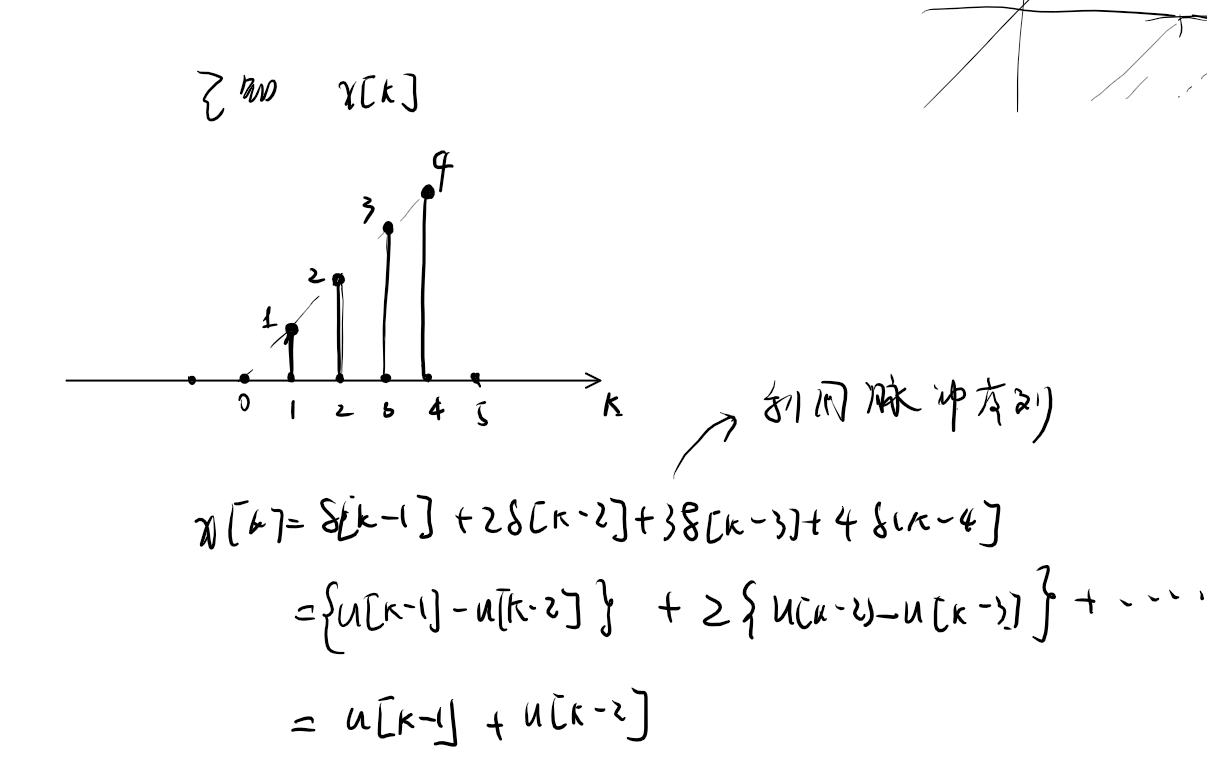 已知 x[k]
4
3
2
1
0 1 2 3 4 5 k
利用脉冲序列
x[k]= δ[k-1] +2δ[k-2]+3δ[k-3]+4 δ[k-4]
={u[k-1]-u[k-2]} + 2{u[k-2]-u[k-3]}+ ·····
= u[k-1] + u[k-2]